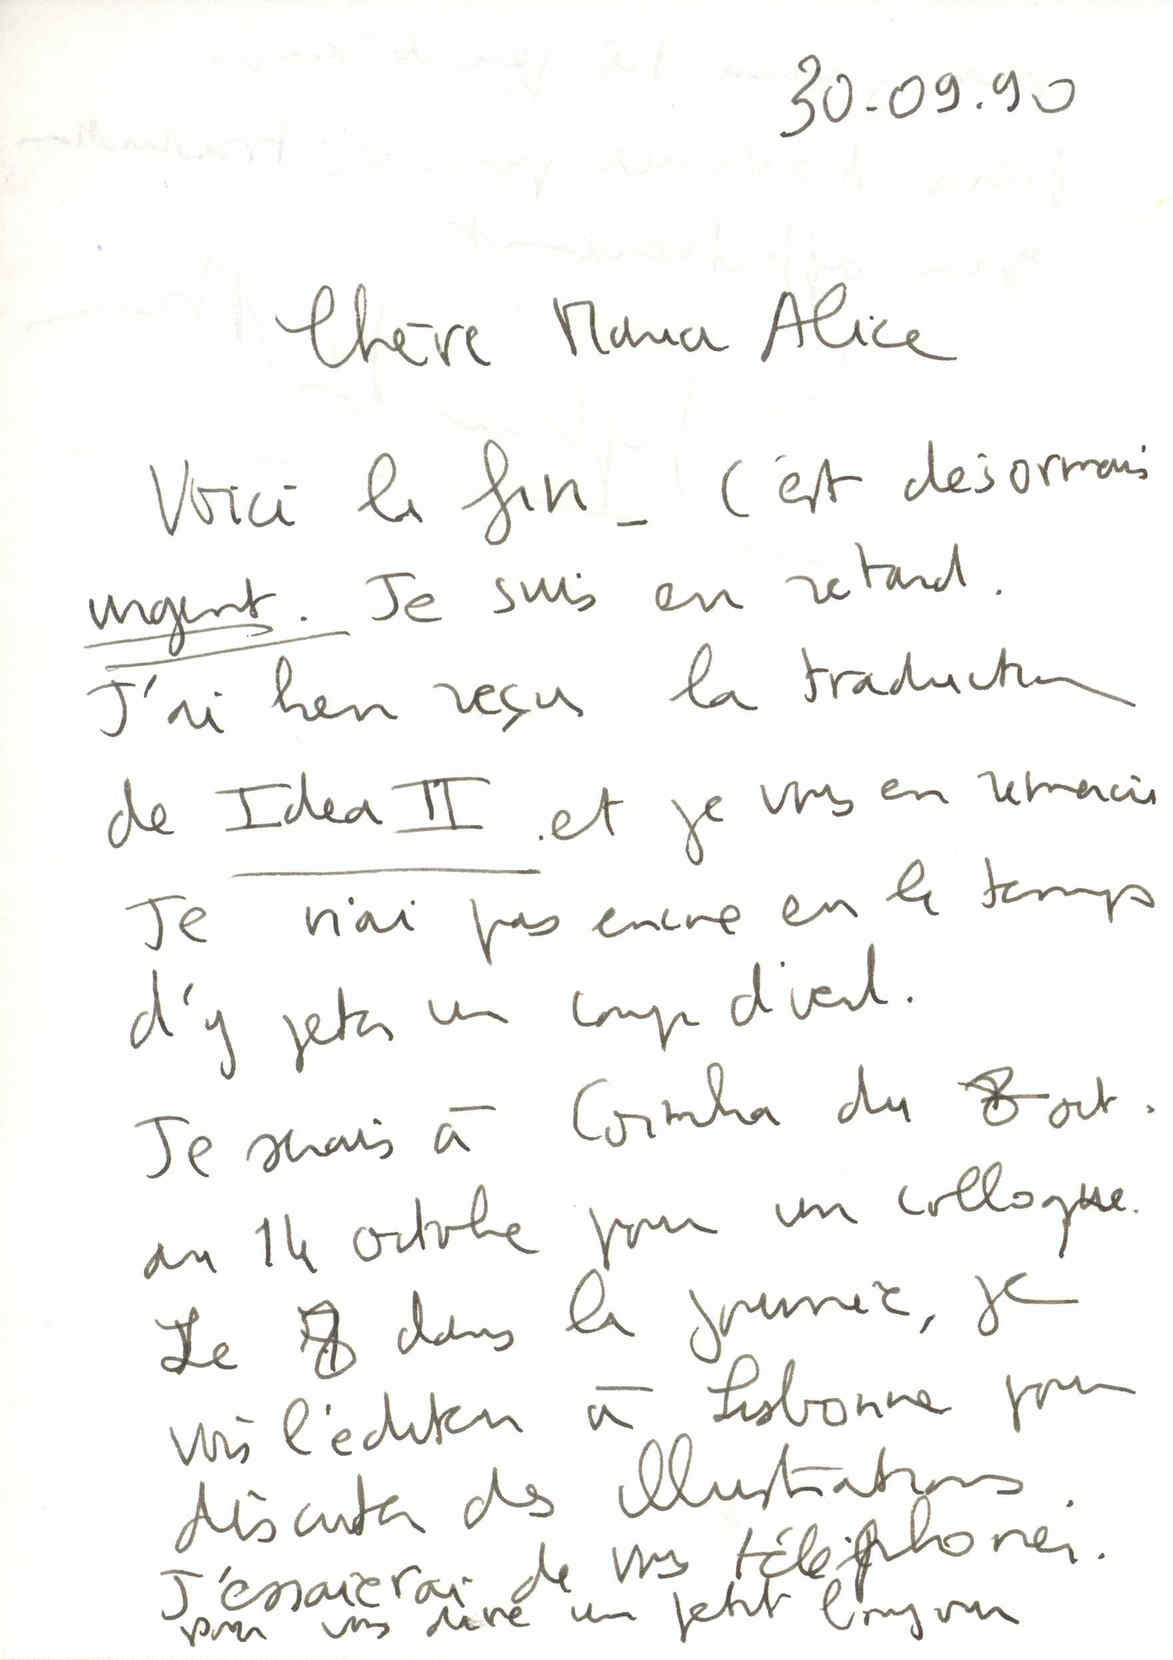 30-09.90
Chère Maria Alice
Voici la fin _ C'est désormais
urgent. Je suis en retard.
J'ai bien reçu la traduction
de Idea II et je vous en remercie
Je n'ai pas encore eu le temps
d'y jeter un coup d'oeil.
Je serais à Coimbra du 8 oct.
au 14 octobre pour un colloque.
Le 8 dans la journée, je
vois l'éditeur à Lisbonne pour
discuter des illustrations.
J'essaierai de vous téléphoner.
pour vous dire un petit bonjour